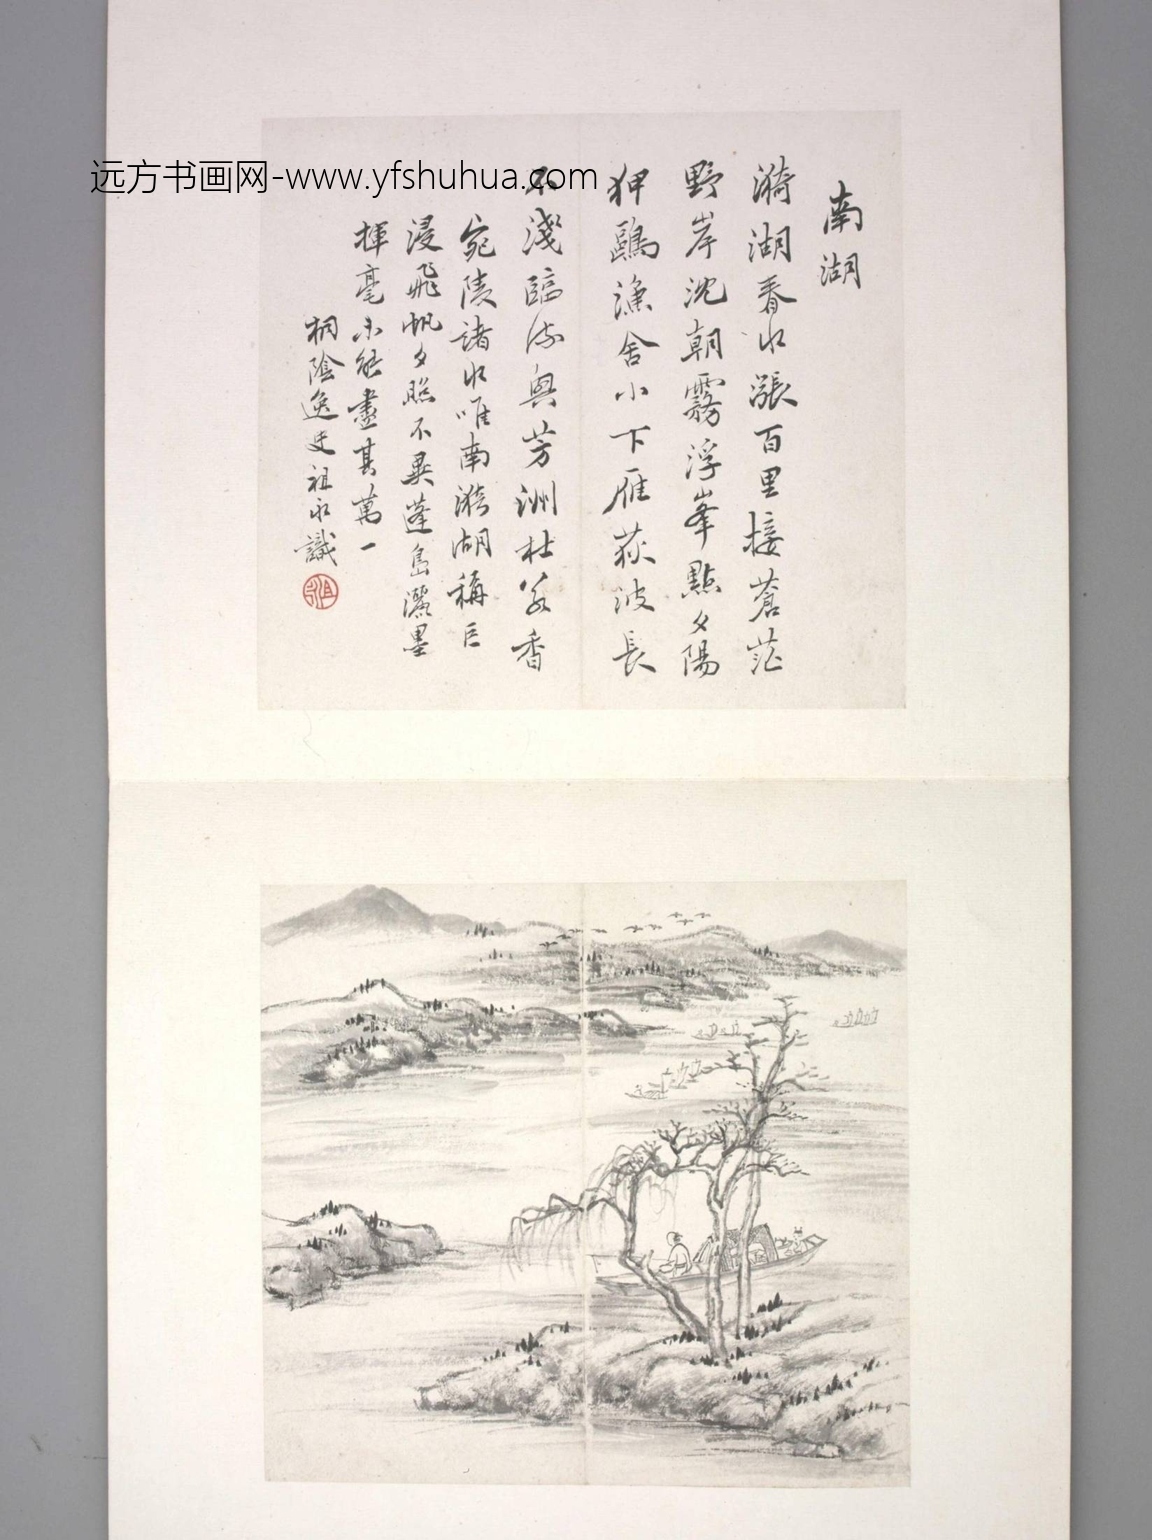 远方书画网-www.yfshuhua.com
南湖
漪湖春水漲百里接蒼茫
野岸沈朝霧浮峯點夕陽
狎鷗漁舍小下雁荻波長
不淺臨流興芳洲杜若香
宛陵諸水唯南漪湖稱巨
浸飛帆夕照不異蓬島灑墨
揮毫未能盡其萬一
桐陰逸史祖永識